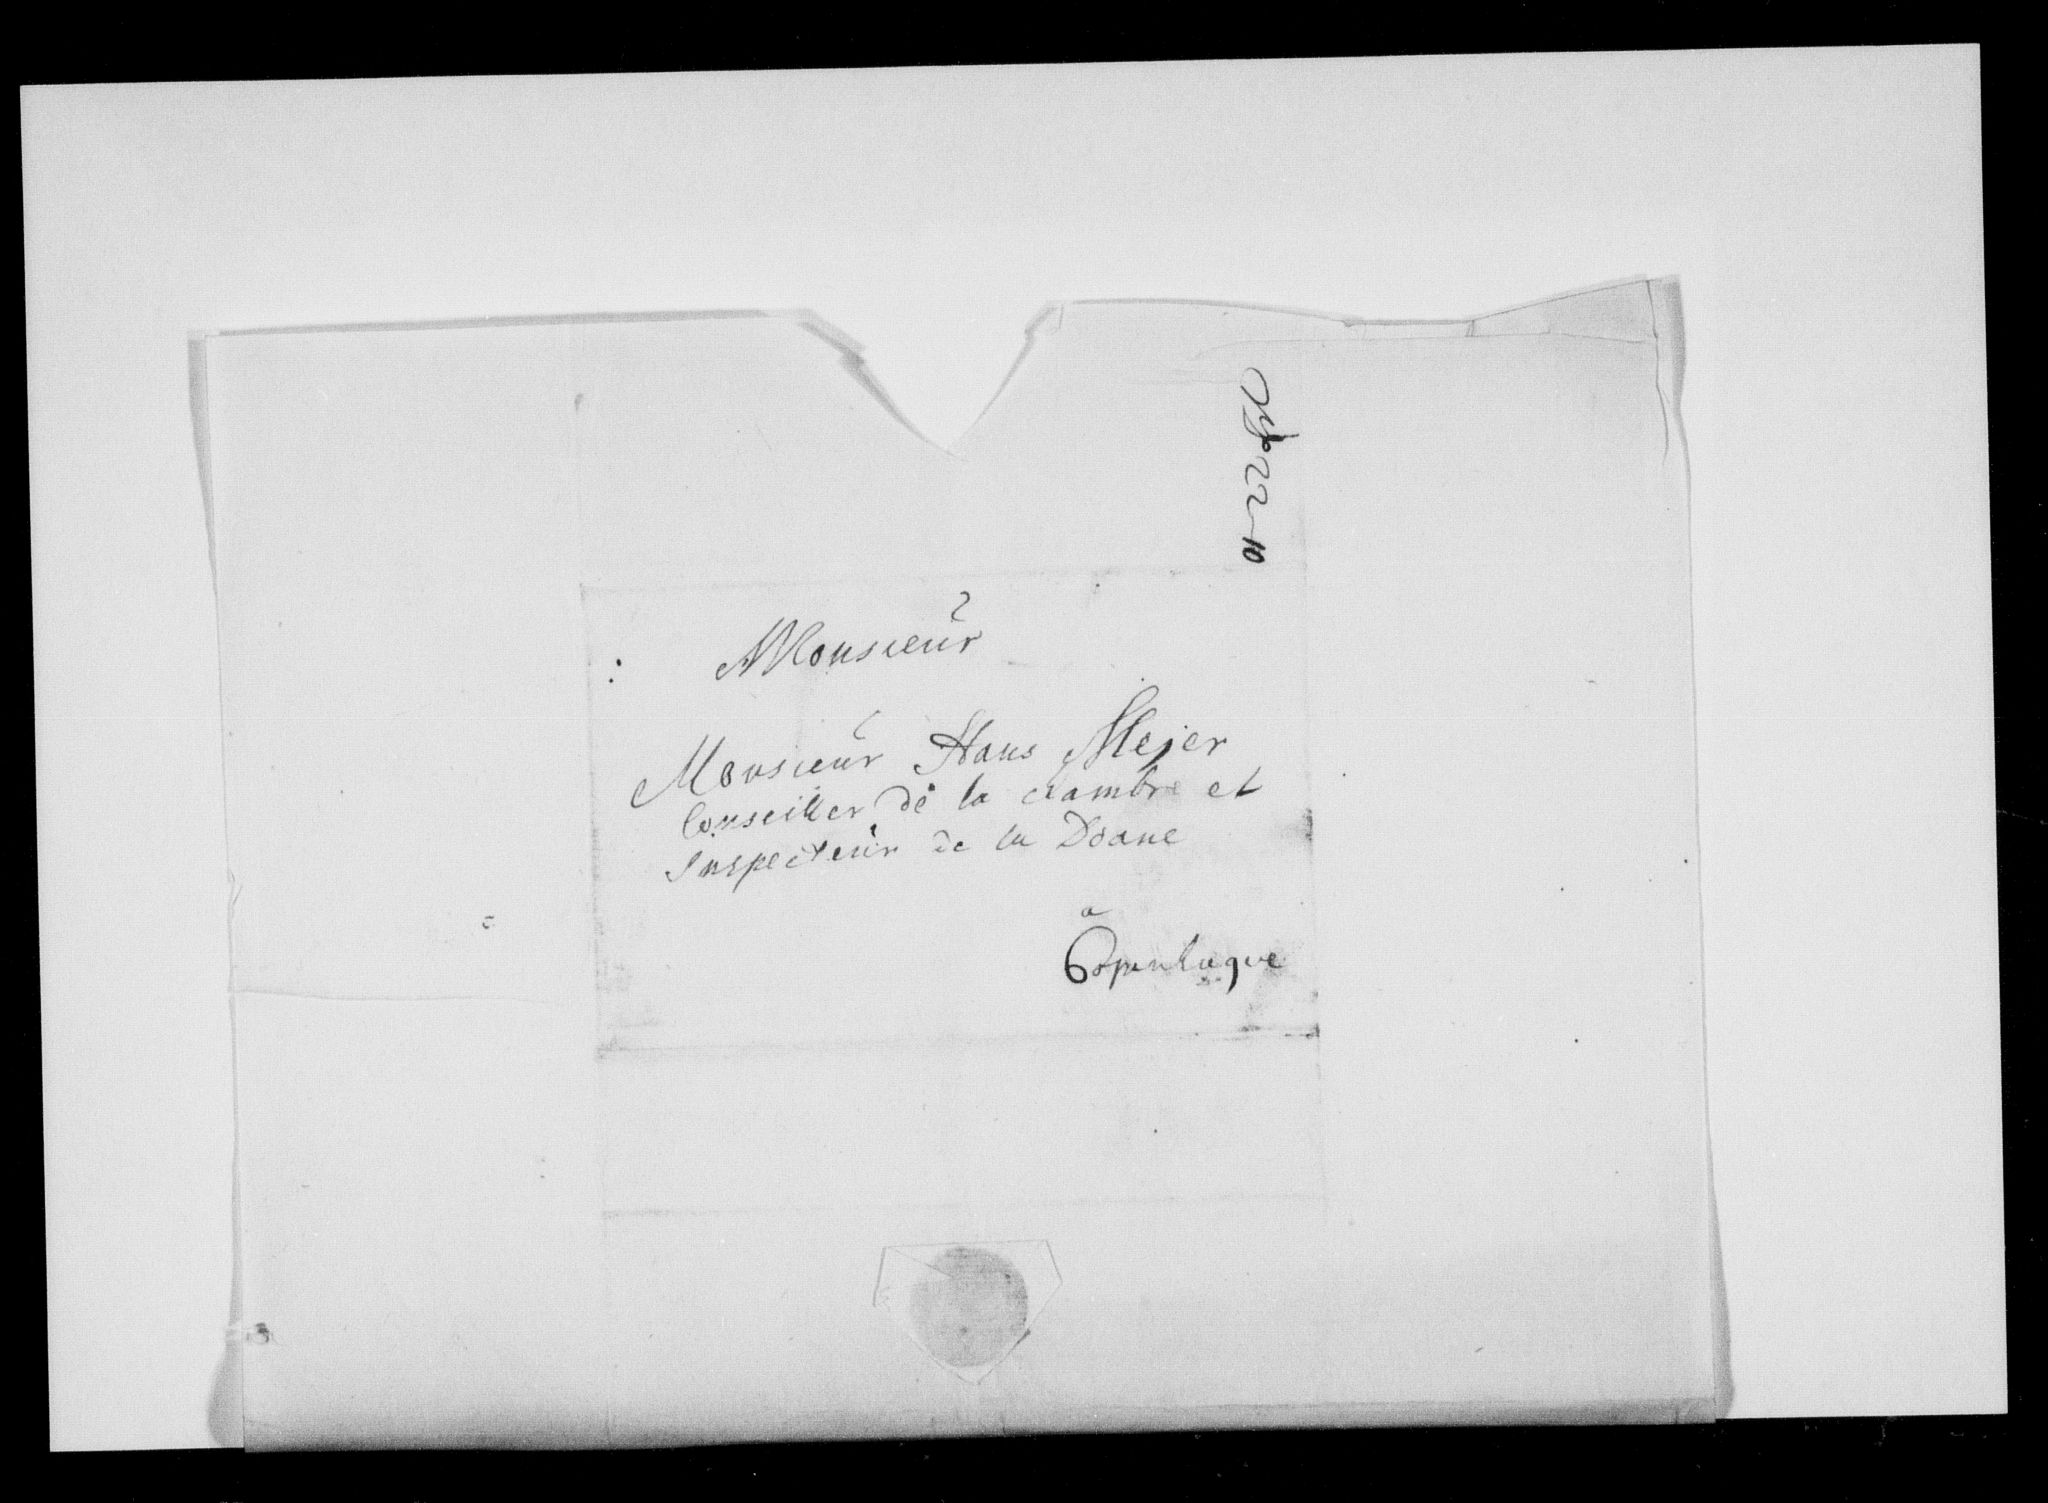 22-10
Monsieur
Monsieur Hans Mejer
Conseiller de la chambre et
Inspecteur de la Doane
a
Copenhague